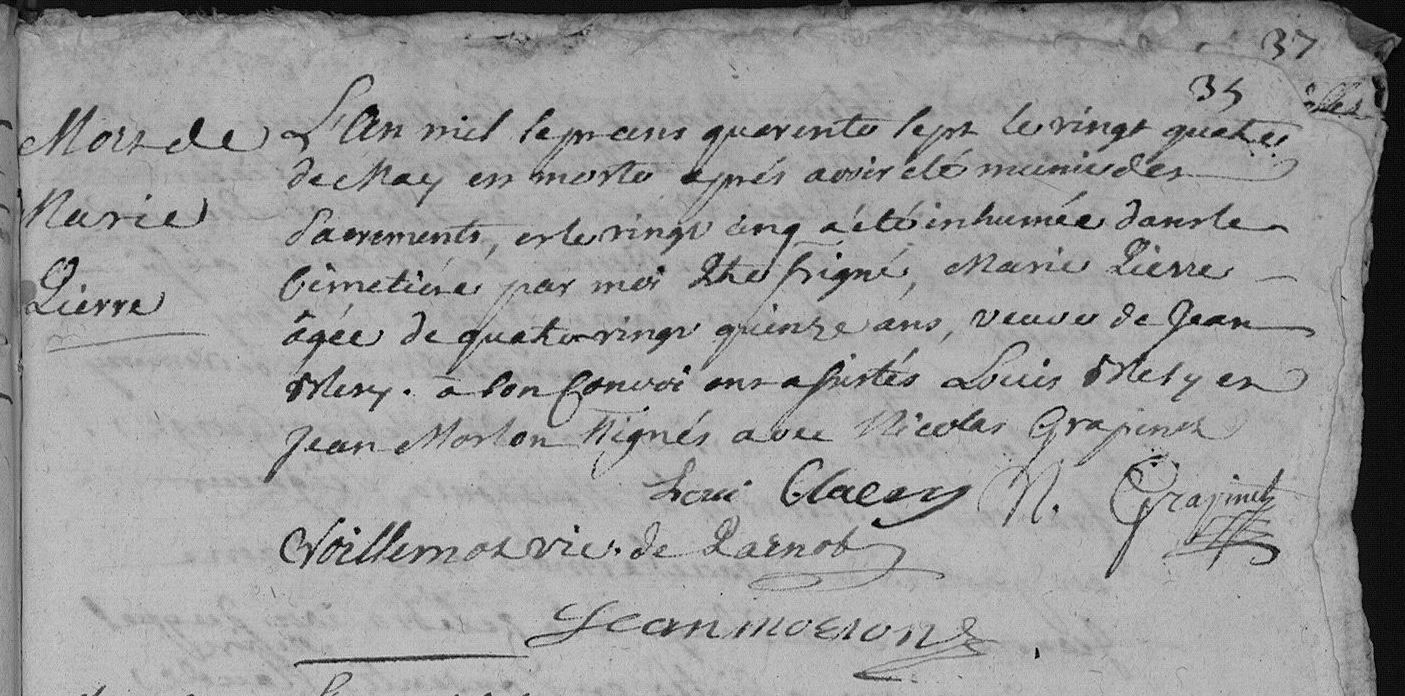 37
35
Mort de
Marie
Pierre
L'An mil sept cens quarente sept le vingt quatre
de May est morte aprés avoir eté munie des
Sacrements, et le vingt cinq a été inhumée dans le
Cimetiére par moi Ptre Signé, Marie Pierre
âgée de quatre vingt quinze ans, veuve de Jean
à son Convoi ont assistés Louis et
Jean Morlon signés avec Nicolas Grapinet
Loui N. Grapinet
Voillemot vic. de Parnot
Jean moron